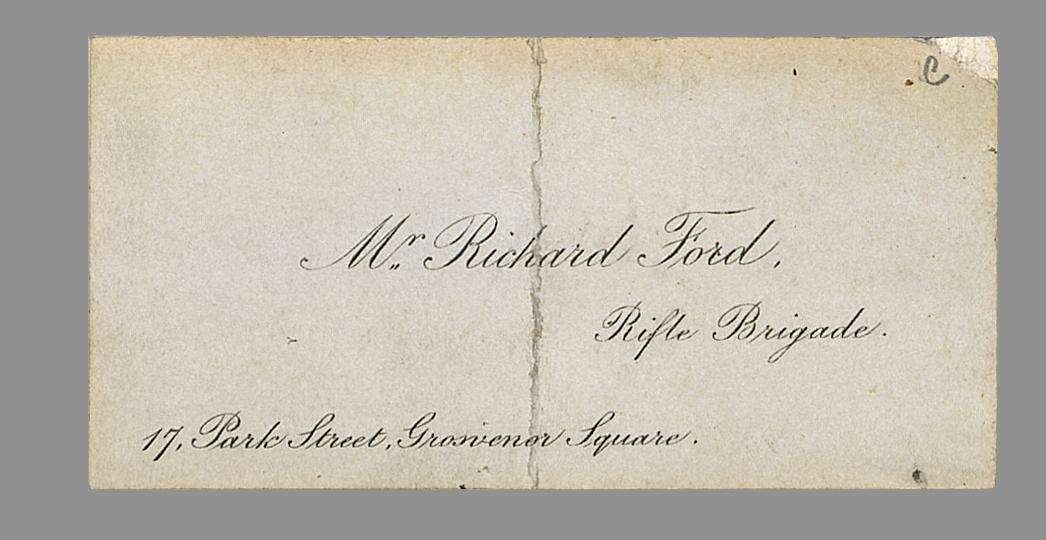 C
Mr. Richard Ford,
Rifle Brigade.
17, Park Street, Grosvenor Square.